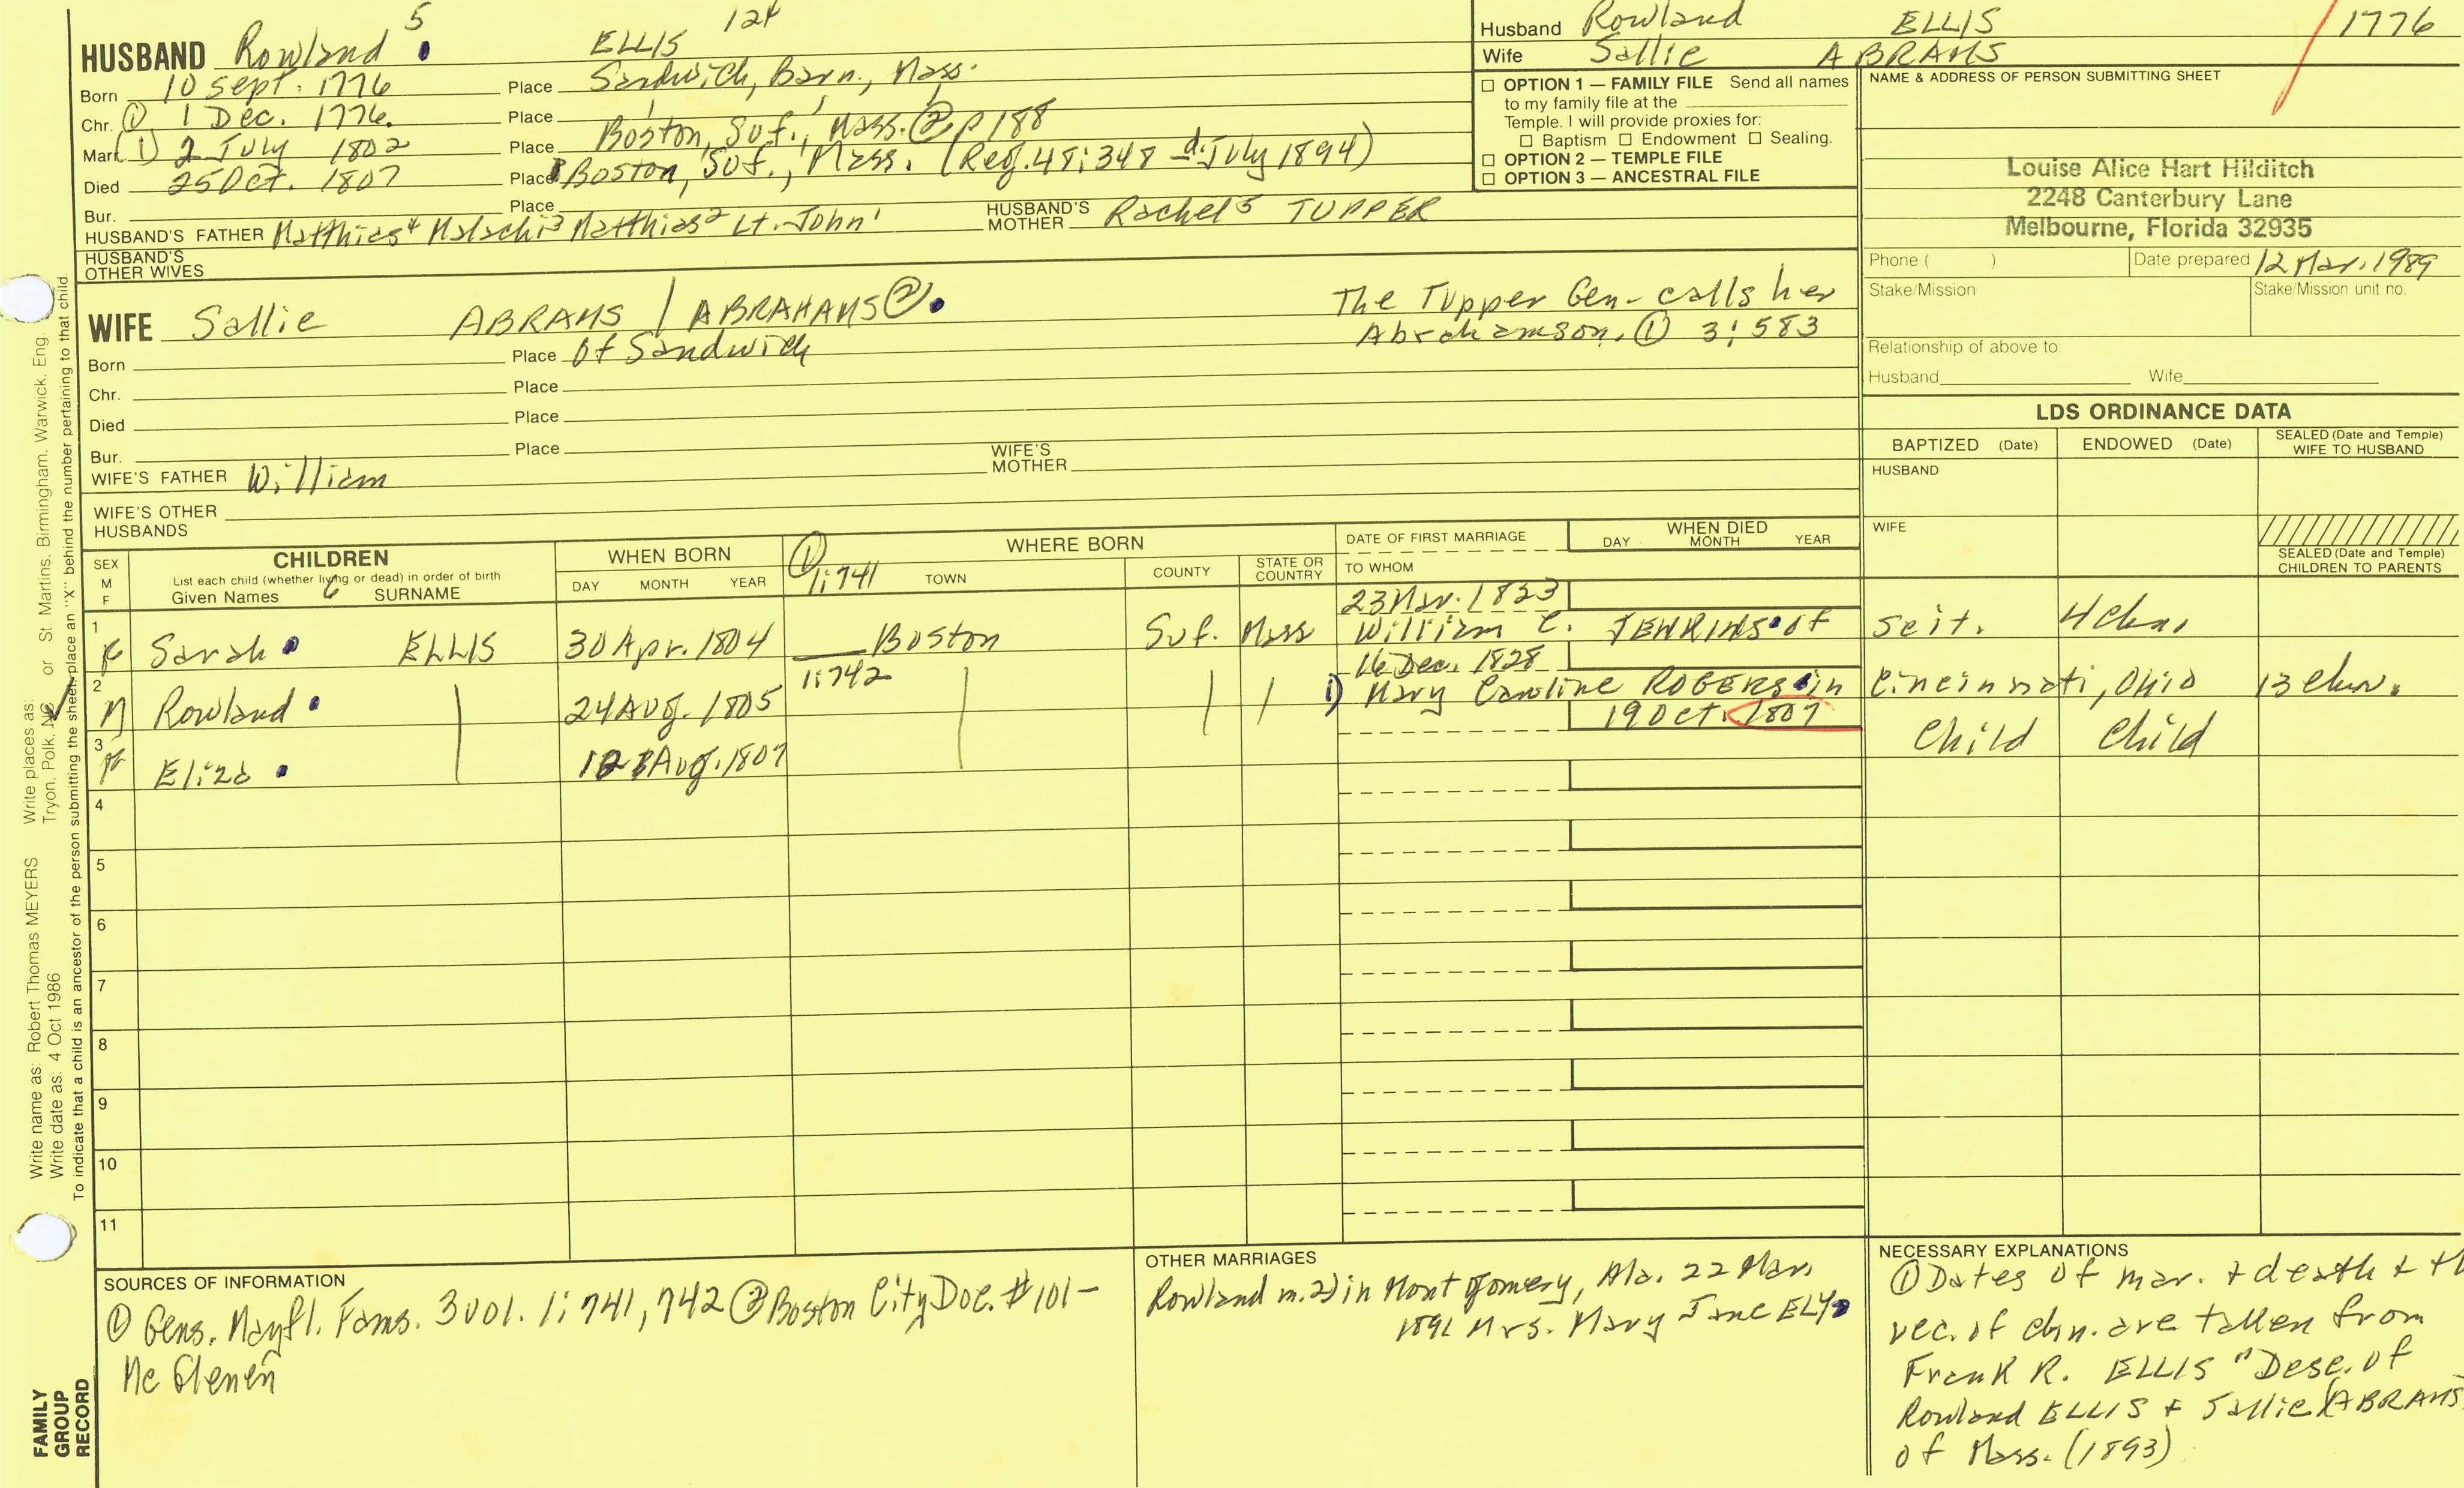 HUSBAND Rowland 5 ELLIS 124
Born 10 Sept. 1776 Place Sandwich, Barn., Mass.
Chr. ① 1 Dec. 1776. Place
Marr. (1) 2 July 1802 Place Boston, Suf., Mass. ② p 188
Died 25 Oct. 1807 Place Boston, Suf., Mass. (Reg. 48:348 July 1894)
Bur. Place
HUSBAND'S FATHER Matthias⁴ Malachi³ Matthias² Lt. John¹ HUSBAND'S MOTHER Rachel⁵ TUPPER
HUSBAND'S OTHER WIVES
Husband Rowland ELLIS 1776
Wife Sallie ABRAMS
☐ OPTION 1 — FAMILY FILE Send all names
to my family file at the
Temple. I will provide proxies for:
☐ Baptism ☐ Endowment ☐ Sealing.
☐ OPTION 2 — TEMPLE FILE
☐ OPTION 3 — ANCESTRAL FILE
NAME & ADDRESS OF PERSON SUBMITTING SHEET
Louise Alice Hart Hilditch
2248 Canterbury Lane
Melbourne, Florida 32935
Phone ( ) Date prepared 12 Mar. 1989
Stake/Mission Stake/Mission unit no.
Relationship of above to:
Husband Wife
WIFE Sallie ABRAMS / ABRAHAMS ②. The Tupper Gen- calls her
Abrahamson. ① 3:583
Born Place Of Sandwich
Chr. Place
Died Place
Bur. Place
WIFE'S FATHER William WIFE'S MOTHER
WIFE'S OTHER HUSBANDS
LDS ORDINANCE DATA
BAPTIZED (Date) ENDOWED (Date) SEALED (Date and Temple) WIFE TO HUSBAND
HUSBAND
WIFE
SEALED (Date and Temple) CHILDREN TO PARENTS
SEX M F
CHILDREN
List each child (whether living or dead) in order of birth
Given Names SURNAME
WHEN BORN
DAY MONTH YEAR
① 1:741
WHERE BORN
TOWN COUNTY STATE OR COUNTRY
DATE OF FIRST MARRIAGE
TO WHOM
WHEN DIED
DAY MONTH YEAR
23 Mar. 1823
1 F Sarah ELLIS 30 Apr. 1804 Boston Suf. Mass William C. JENKINS of Scit. 4 chn.
1:742 16 Dec. 1828
2 M Rowland 24 Aug. 1805 1) Mary Caroline ROGERS in Cincinnati, Ohio 13 chn.
19 Oct. 1807
3 F Eliza Aug. 1807 Child Child
4
5
6
7
8
9
10
11
SOURCES OF INFORMATION
① Gens. Mayfl. Fams. 3 vol. 1:741, 742 ② Boston City Doc. #101-
Mc Glenen
OTHER MARRIAGES
Rowland m. 2) in Montgomery, Ala. 22 Mar.
Mrs. Mary Jane ELY
NECESSARY EXPLANATIONS
① Dates of mar. + death +
rec. of chn. are taken from
Frank R. ELLIS "Desc. of
Rowland ELLIS + Sallie (ABRAMS
of Mass. (1893)
Write name as: Robert Thomas MEYERS Write places as: Tryon, Polk, NC or St. Martins, Birmingham, Warwick, Eng.
Write date as: 4 Oct 1986
To indicate that a child is an ancestor of the person submitting the sheet, place an "X" behind the number pertaining to that child.
FAMILY
GROUP
RECORD